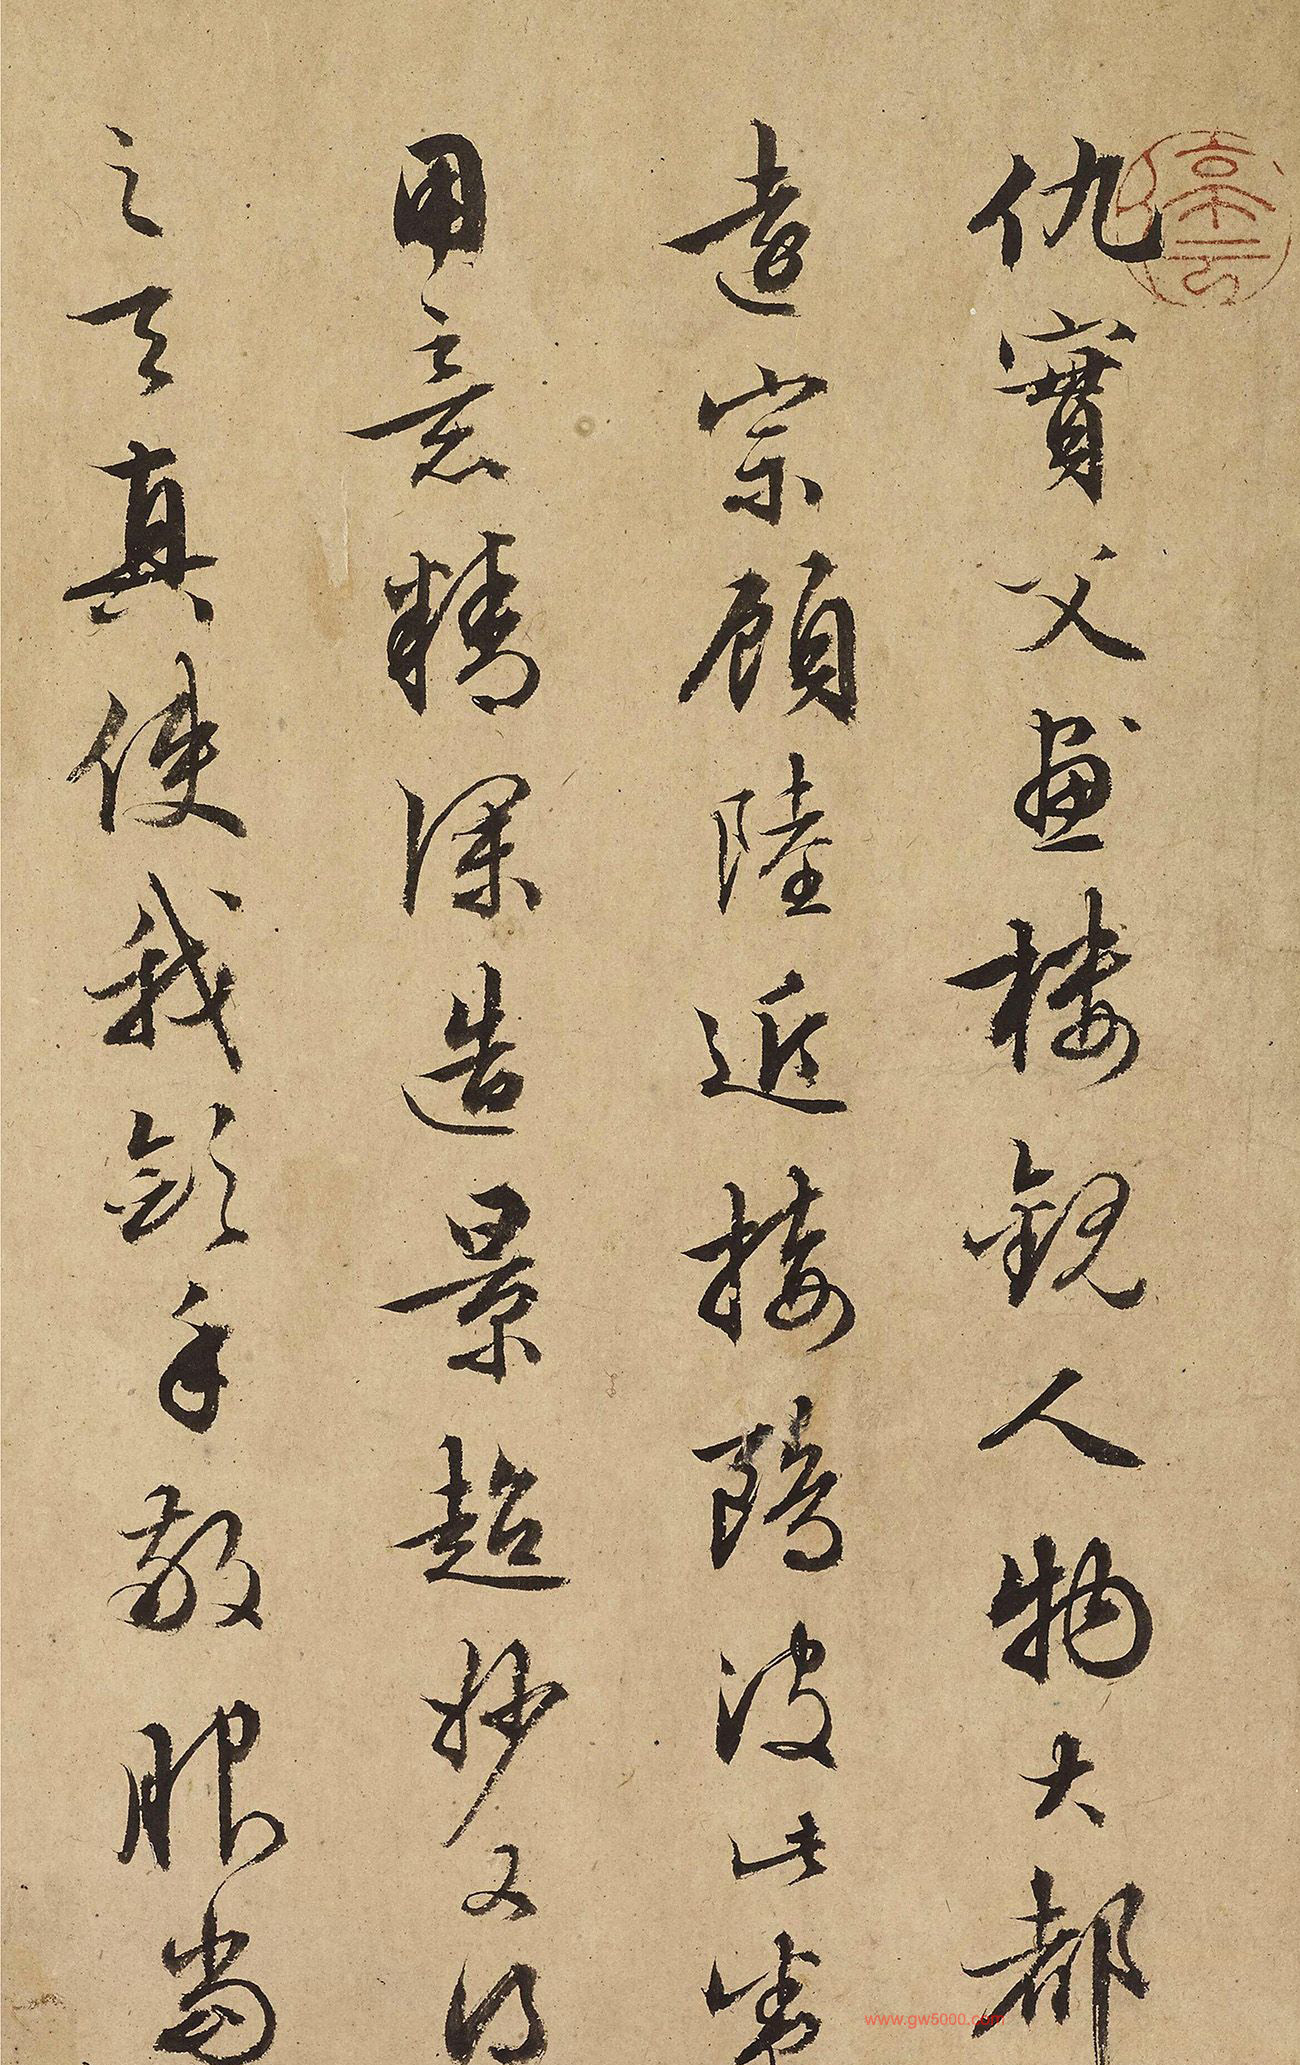 仇實父畫楼觀人物大都
遠宗顧陸近接隨波此卷
用意精深造景超妙又得
之天真使我斂手敬服當
www.gw5000.com